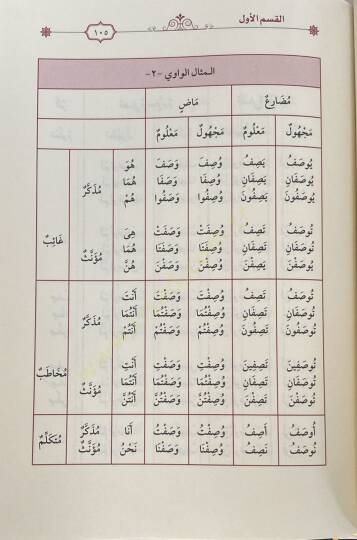 القسم الأول
١٠٥
المثال الواوي -٢-
مَاضٍ مُضَارِعٌ
مَعْلُومٌ مَجْهُولٌ مَعْلُومٌ مَجْهُولٌ
غَائِبٌ مُذَكَّرٌ هُوَ وَصَفَ وُصِفَ يَصِفُ يُوصَفُ
هُمَا وَصَفَا وُصِفَا يَصِفَانِ يُوصَفَانِ
هُمْ وَصَفُوا وُصِفُوا يَصِفُونَ يُوصَفُونَ
مُؤَنَّثٌ هِىَ وَصَفَتْ وُصِفَتْ تَصِفُ تُوصَفُ
هُمَا وَصَفَتَا وُصِفَتَا تَصِفَانِ تُوصَفَانِ
هُنَّ وَصَفْنَ وُصِفْنَ يَصِفْنَ يُوصَفْنَ
مُخَاطَبٌ مُذَكَّرٌ أَنْتَ وَصَفْتَ وُصِفْتَ تَصِفُ تُوصَفُ
أَنْتُمَا وَصَفْتُمَا وُصِفْتُمَا تَصِفَانِ تُوصَفَانِ
أَنْتُمْ وَصَفْتُمْ وُصِفْتُمْ تَصِفُونَ تُوصَفُونَ
مُؤَنَّثٌ أَنْتِ وَصَفْتِ وُصِفْتِ تَصِفِينَ تُوصَفِينَ
أَنْتُمَا وَصَفْتُمَا وُصِفْتُمَا تَصِفَانِ تُوصَفَانِ
أَنْتُنَّ وَصَفْتُنَّ وُصِفْتُنَّ تَصِفْنَ تُوصَفْنَ
مُتَكَلِّمٌ مُذَكَّرٌ أَنَا وَصَفْتُ وُصِفْتُ أَصِفُ أُوصَفُ
مُؤَنَّثٌ نَحْنُ وَصَفْنَا وُصِفْنَا نَصِفُ نُوصَفُ